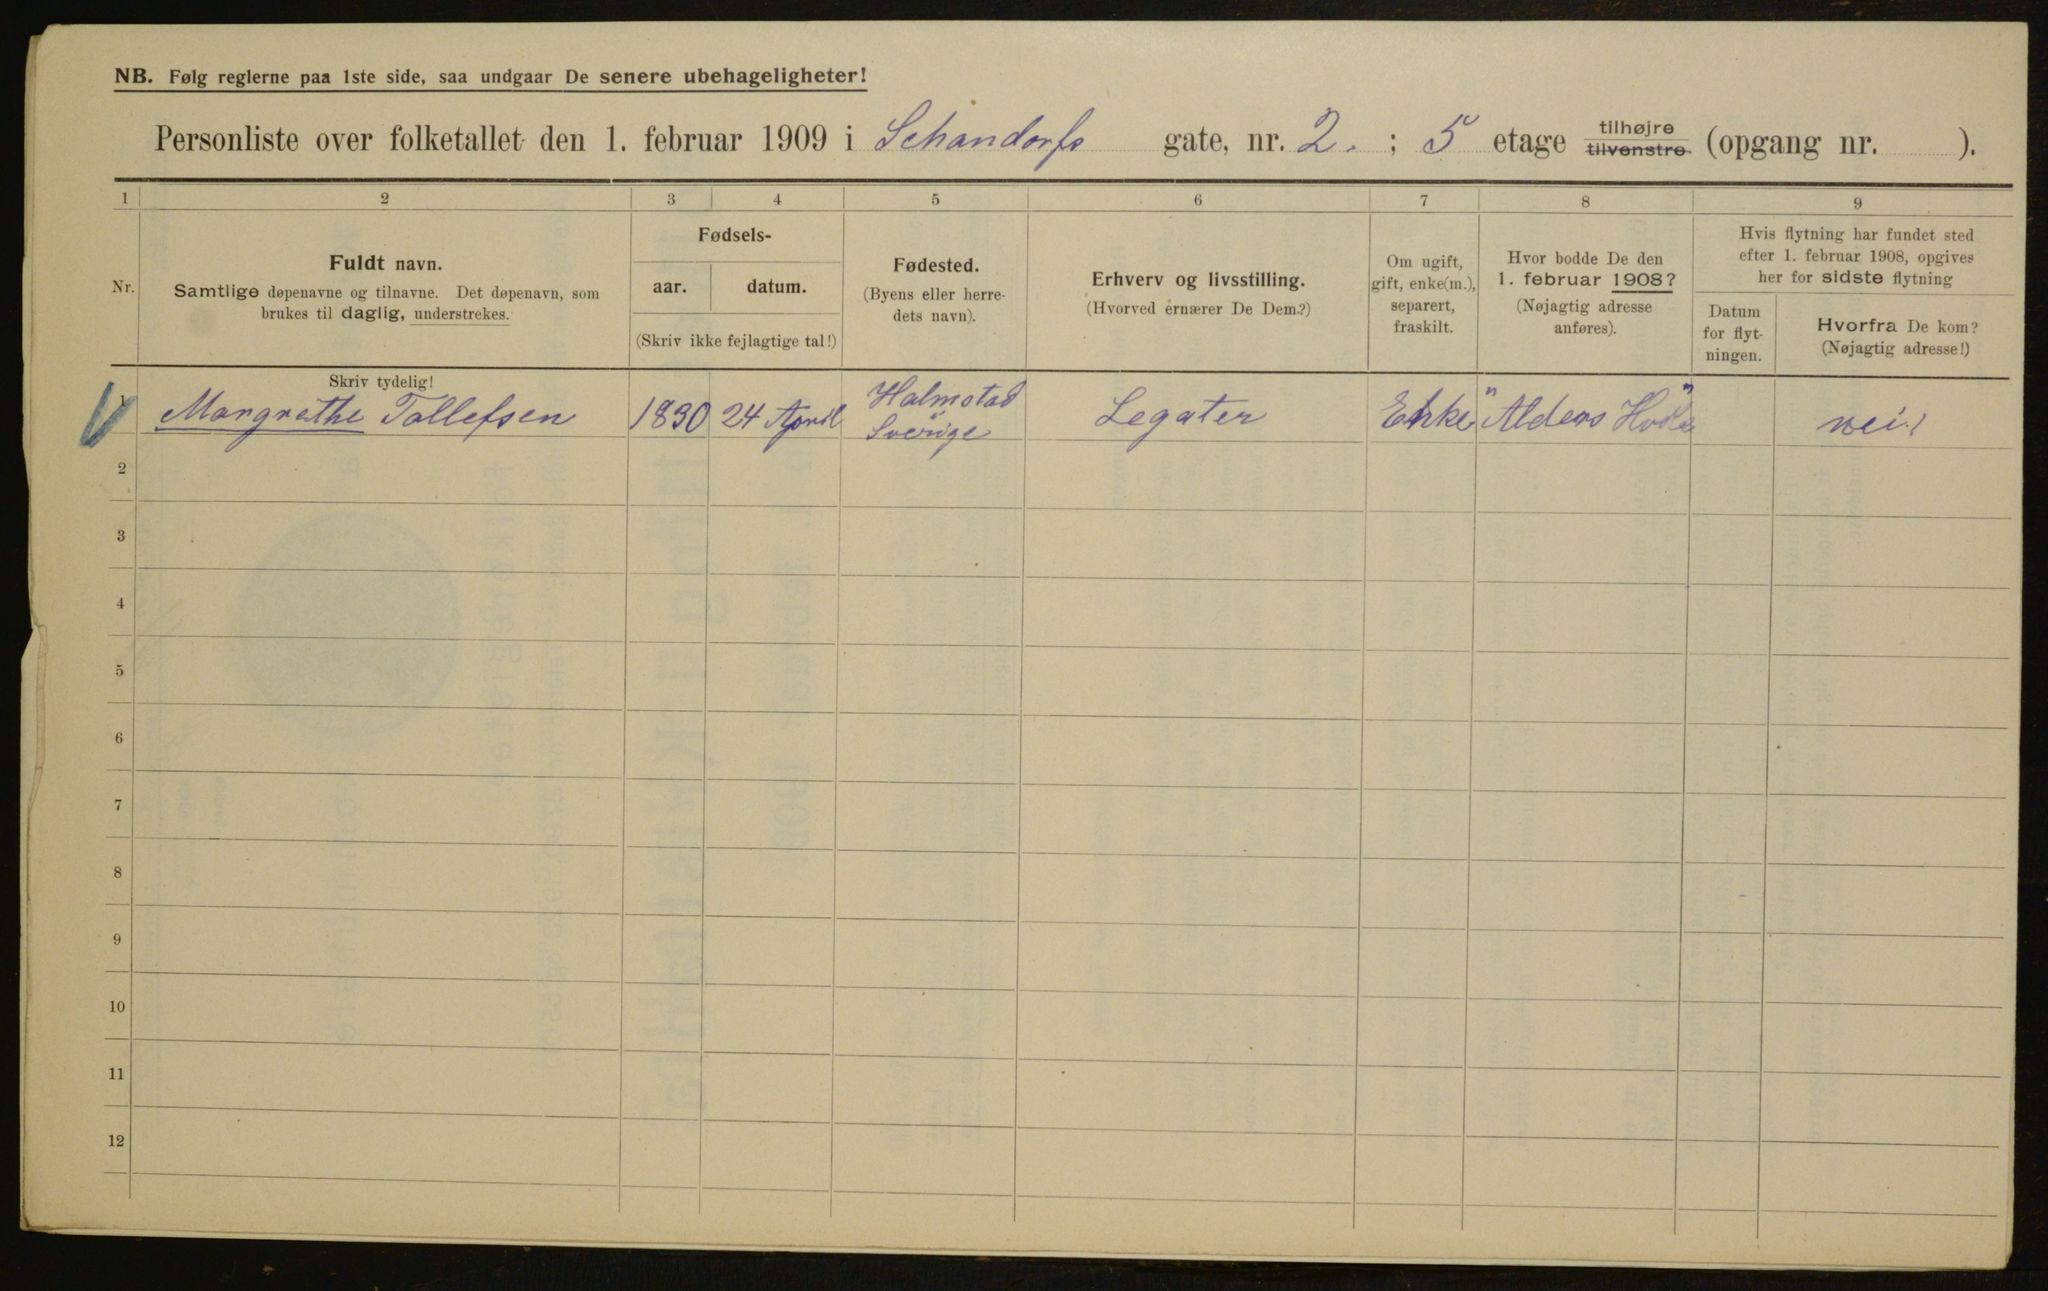 NB. Følg reglerne paa 1ste side, saa undgaar De senere ubehageligheter!
Personliste over folketallet den 1. februar 1909 i Schandorfs gate, nr. 2. ; 5 etage tilhøjre tilvenstre (opgang nr. ).
1 2 3 4 5 6 7 8 9
Nr.
Fuldt navn.
Samtlige døpenavne og tilnavne. Det døpenavn, som
brukes til daglig, understrekes.
Skriv tydelig!
Fødsels-
aar. datum.
(Skriv ikke fejlagtige tal!)
Fødested.
(Byens eller herre-
dets navn).
Erhverv og livsstilling.
(Hvorved ernærer De Dem?)
Om ugift,
gift, enke(m.),
separert,
fraskilt.
Hvor bodde De den
1. februar 1908?
(Nøjagtig adresse
anføres).
Hvis flytning har fundet sted
efter 1. februar 1908, opgives
her for sidste flytning
Datum
for flyt-
ningen.
Hvorfra De kom?
(Nøjagtig adresse!)
1 Margrethe Tallefsen 1830 24 April Halmstad Sverige Legater Enke "Alders Hvile" nei!
2
3
4
5
6
7
8
9
10
11
12